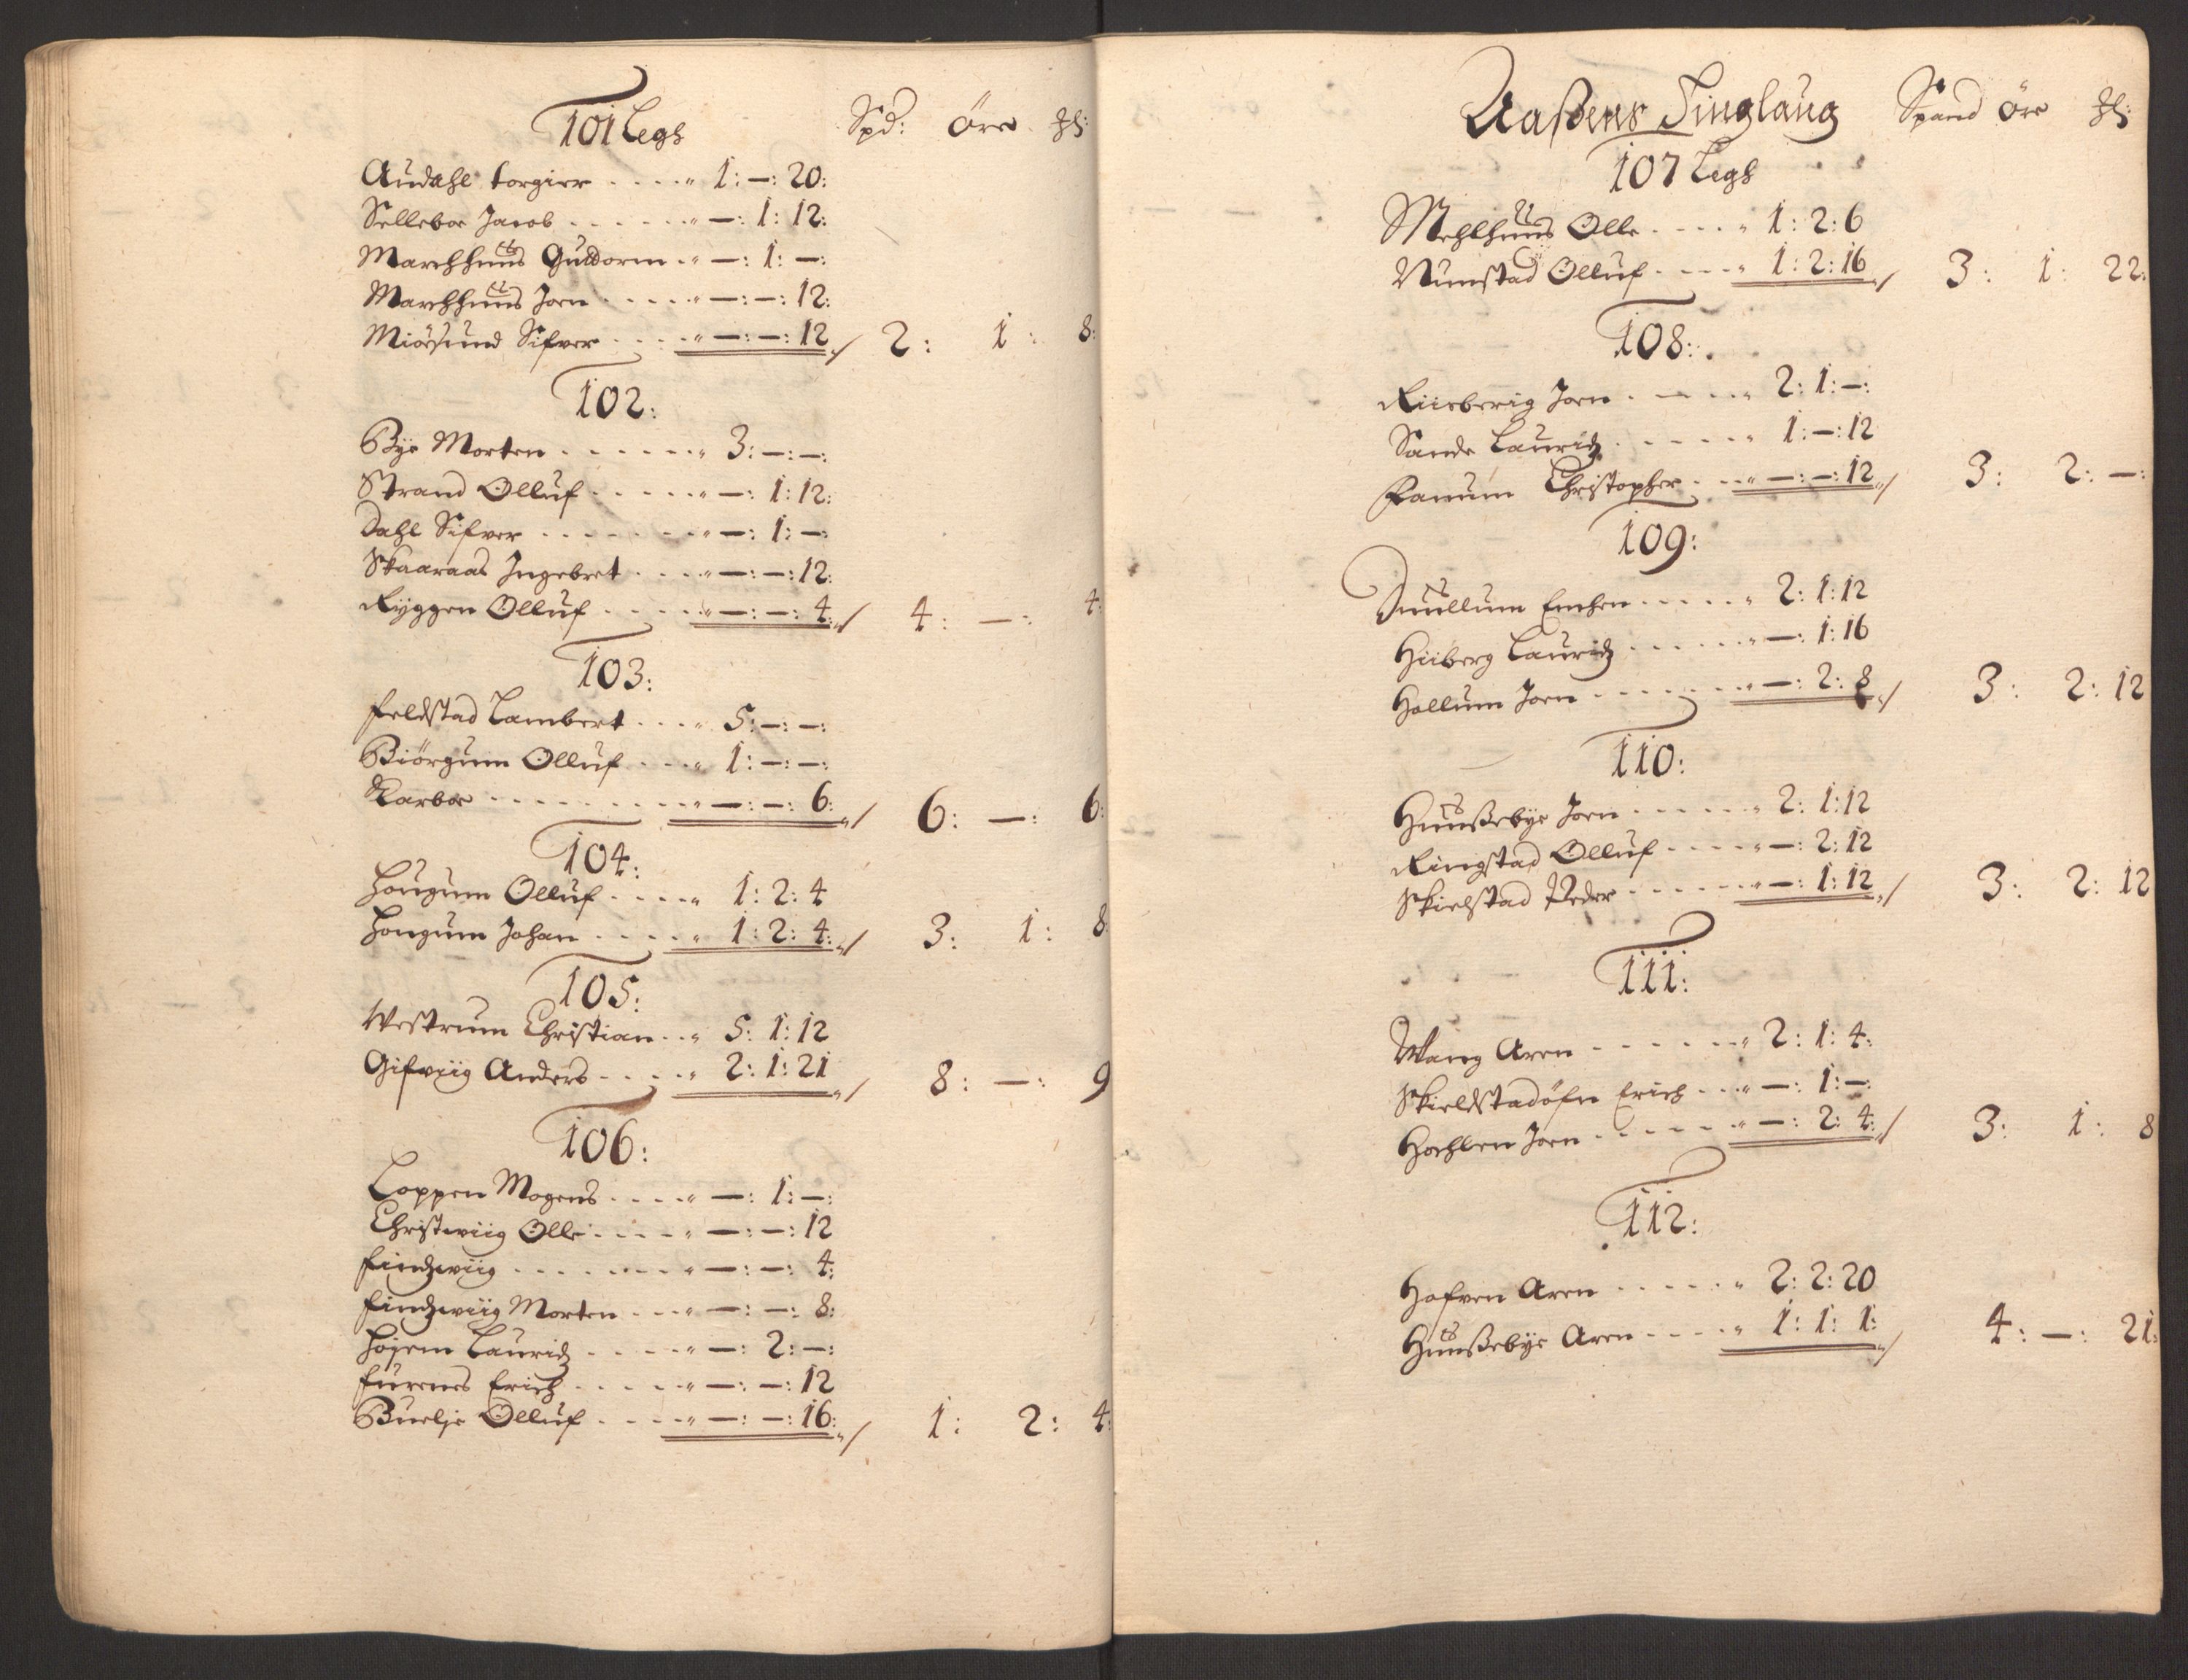 101 Legh Spd: Öre
Audahl torgier . . . . " 1: —: 20:
Selleboe Jacob . . . . . . " —: 1: 12:
Marchhuus Guldorm . " —: 1: —:
Marchhuus Joen . . . . . " —: —: 12:
Miösund Sifver . . . . " —: —: 12 ./ 2: 1: 8:
102:
Bye Morten . . . . . . " 3: —: —:
Strand Olluf . . . . . " —: 1: 12:
Dahl Sifver . . . . . . . " —: 1: —:
Skaaraas Ingebret . . . . " —: —: 12:
Ryggen Olluf . . . . . " —: —: 4: ./ 4: —: 4:
103:
feldstad Lambert . . . . " 5: —: —:
Biörgum Olluf . . . . " 1: —: —:
Karboe . . . . . . . . . " —: —: 6: ./ 6: —: 6:
104:
Hougum Olluf . . . . . " 1: 2: 4
Hougum Johan . . . . . " 1: 2: 4: ./ 3: 1: 8:
105:
Westrum Christian . . " 5: 1: 12
Gifvviig Anders . . . . " 2: 1: 21 ./ 8: —: 9
106:
Loppen Mogens . . . . " —: 1: —:
Christwiig Olle . . . . " —: —: 12
findzwiig . . . . . . . . " —: —: 4:
findzwiig Morten . . . " —: —: 8:
Hojem Lauridz . . . . . " —: 2: —:
furenes Erich . . . . . " —: —: 12
Buelje Olluf . . . . . " —: —: 16: ./ 1: 2: 4:
Aaßens Tinglaug Spand Öre
107 Legh
Mehlhuus Olle . . . . " 1: 2: 6
Nunstad Olluf . . . . " 1: 2: 16 ./ 3: 1: 22:
108:
Riieberig Joen . . . . . " 2: 1: —:
Sande Lauridz . . . . . " 1: —: 12
Fanum Christopher . . . " —: —: 12 ./ 3: 2: —:
109:
Duullum Enchen . . . . . " 2: 1: 12
Hiiberg Lauridz . . . . . . " —: 1: 16
Hallum Joen . . . . . . . " —: 2: 8 ./ 3: 2: 12
110:
Huußebye Joen . . . . . . " 2: 1: 12
Ringstad Olluf . . . . . " —: 2: 12
Skielstad Peder . . . . . . " —: 1: 12 ./ 3: 2: 12
111:
Wang Aren . . . . . . " 2: 1: 4:
Skieldstadöfre Erich . . . " —: 1: —:
Hochlen Joen . . . . . . " —: 2: 4: ./ 3: 1: 8
112:
Hafven Aren . . . . . . " 2: 2: 20
Huußebye Aren . . . . . " 1: 1: 1: ./ 4: —: 21: